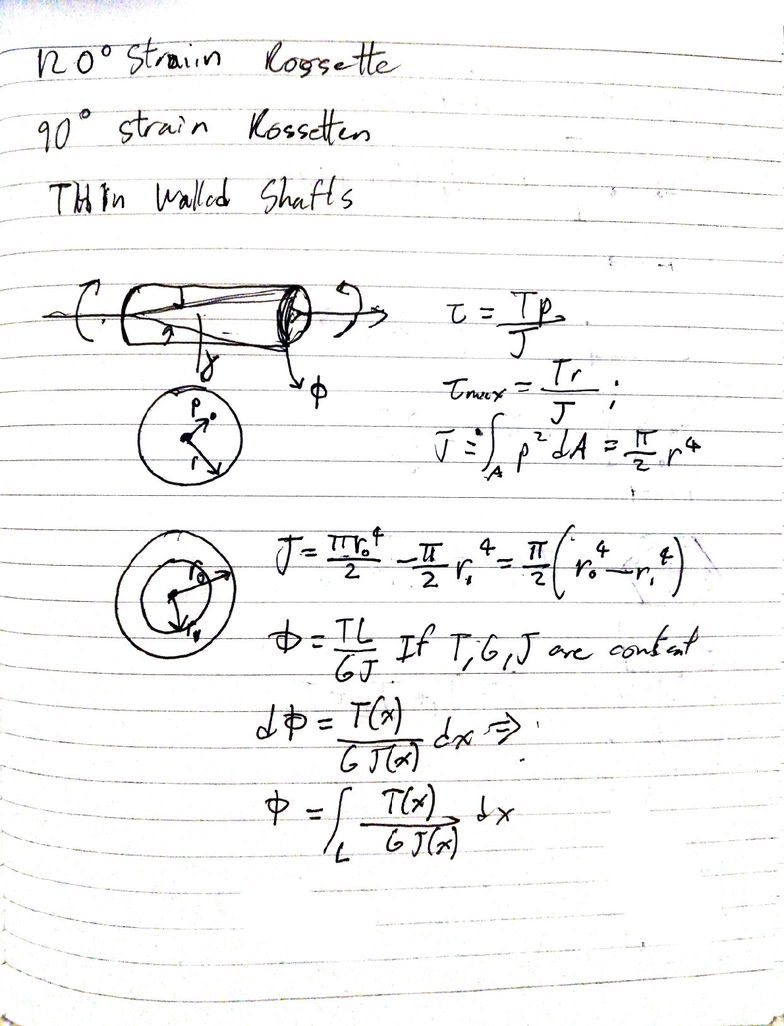 120° Straiin Rossette
90° strain Rossetten
THIn Walled Shafts
γ
ϕ
τ = Tρ/J
τmax = Tr/J ;
ρ
r
J = ∫_A ρ² dA = π/2 r⁴
r₀
r₁
J = πr₀⁴/2 - π/2 r₁⁴ = π/2 (r₀⁴ - r₁⁴)
ϕ = TL/GJ If T, G, J are constant
dϕ = T(x)/GJ(x) dx ⇒
ϕ = ∫_L T(x)/GJ(x) dx